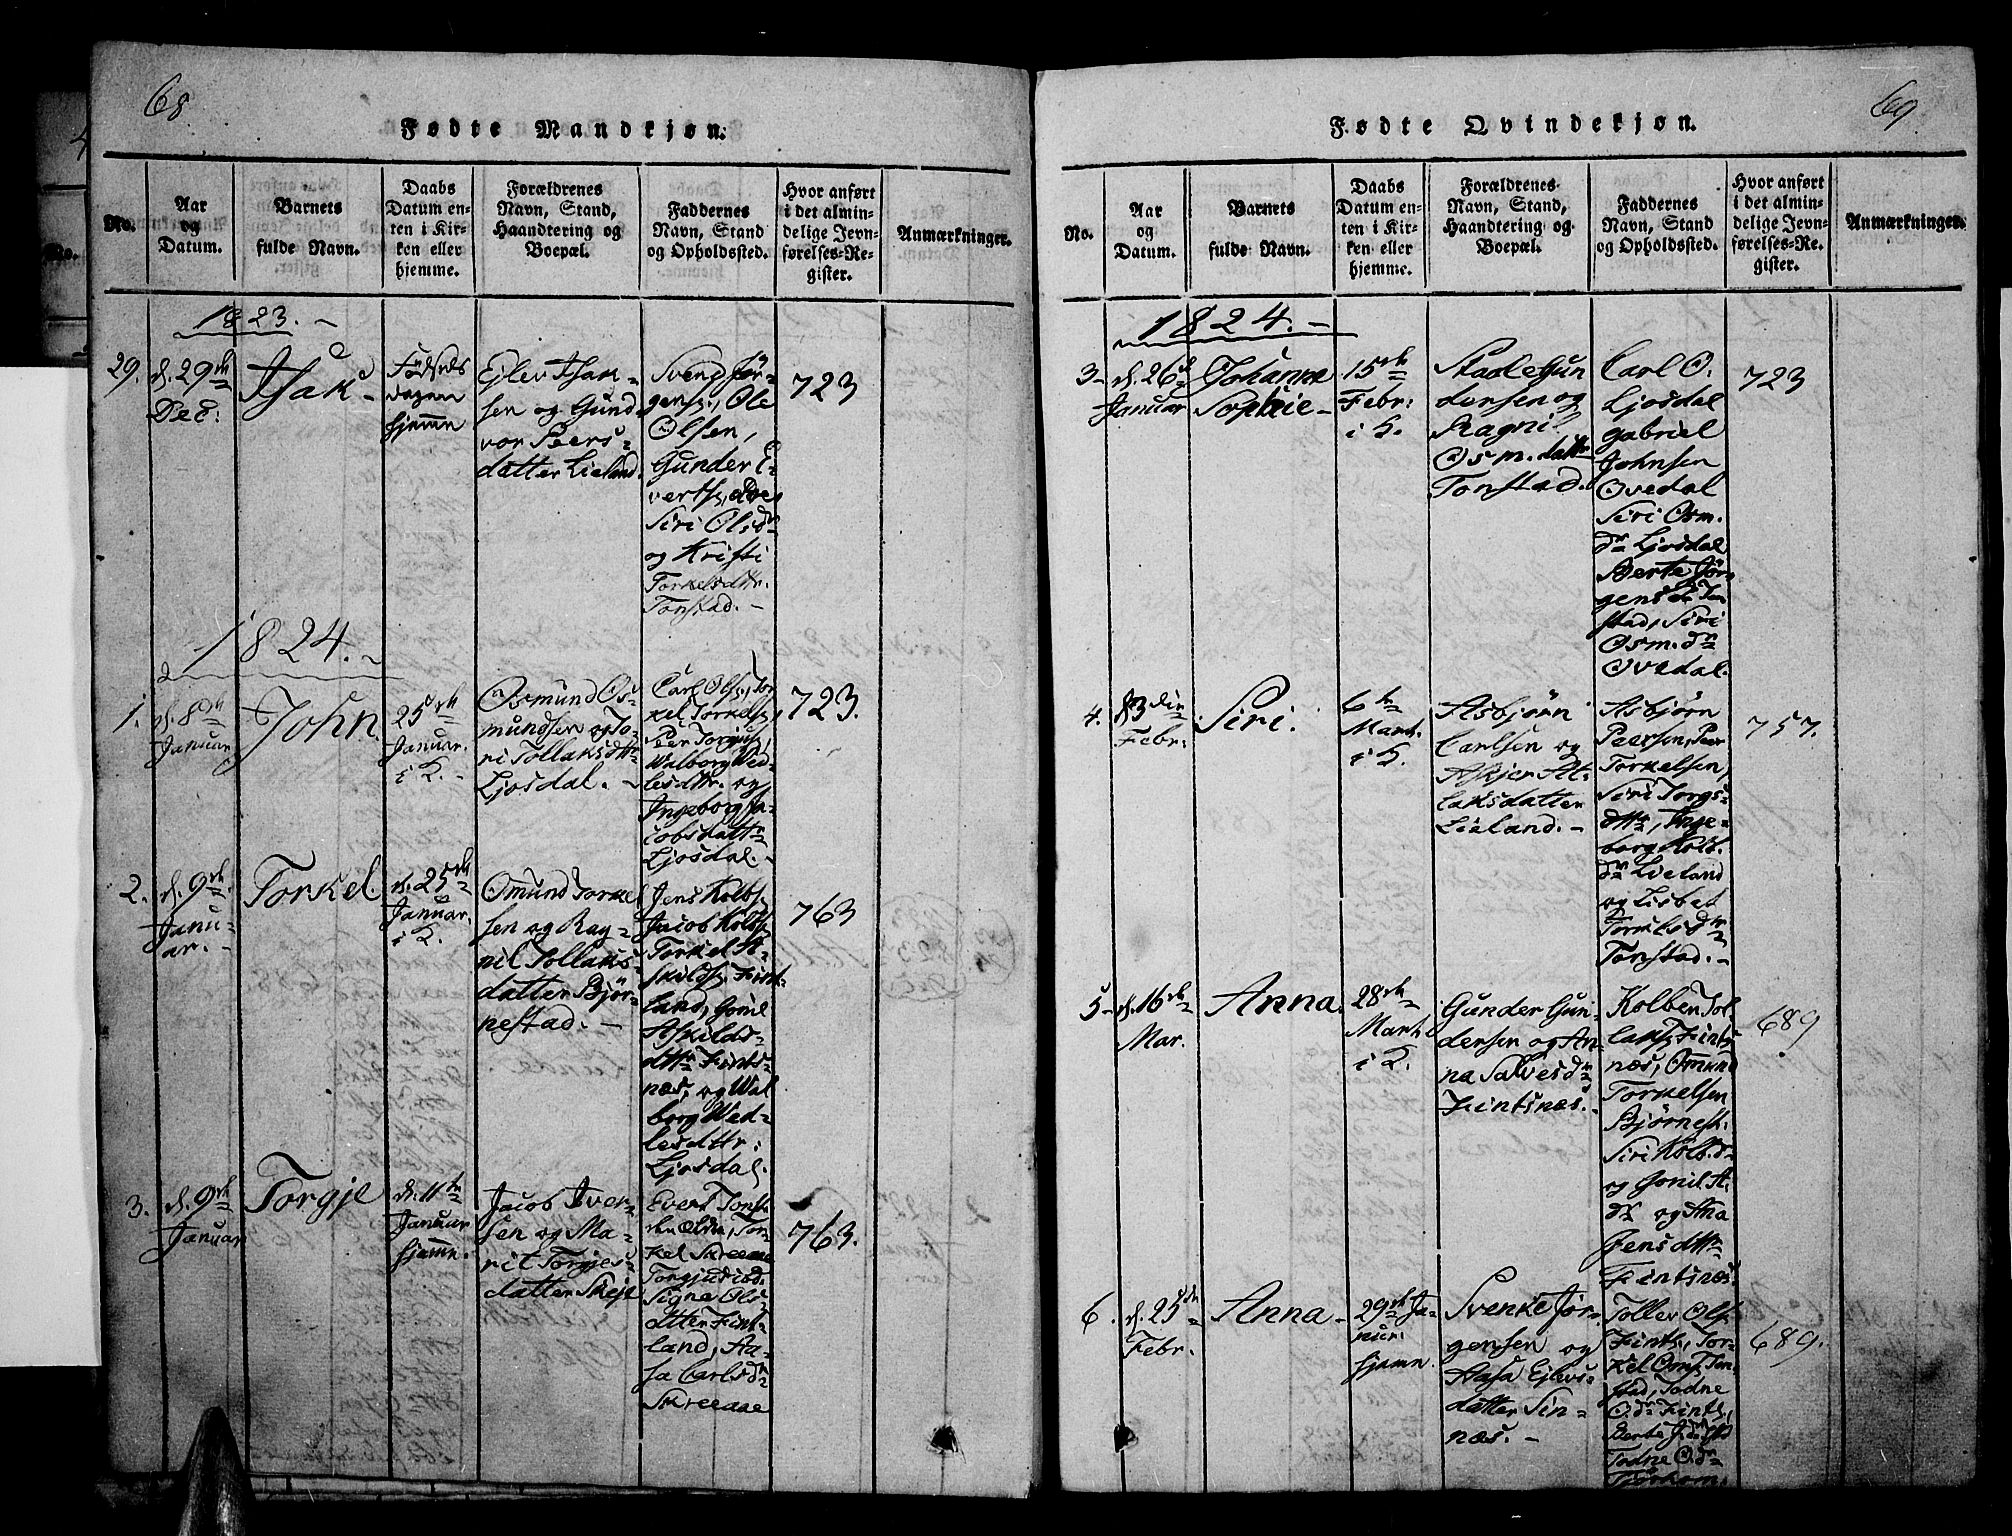 68
Fødte Mandkjøn.
No.
Aar
og
Datum.
Barnets
fulde Navn.
Daabs
Datum en-
ten i Kir-
ken eller
hjemme.
Forældrenes
Navn, Stand,
Haandtering og
Boepæl.
Faddernes
Navn, Stand
og Opholdssted.
Hvor anført
i det almin-
delige Jevn-
førelses-Re-
gister.
Anmærkninger.
1823.
29.
d. 29de
Dec:
Isak
hjemme
Ejlev Isak-
sen og Gund-
vor Peers-
datter Lieland.
Svend Jør-
gens., Ole
Olsen,
Gunder E-
verts.,
Siri Olsdr
og Kristi
Torkelsdttr.
Tonstad.
723
1824.
1.
d. 8de
Januar
John
25de
Januar.
i K.
Osmund Os-
mundsen og To-
ri Tollaksdttr
Ljosdal.
Carl Ols., Tor-
kel Torkels.,
Peer Torjus.,
Walborg Wed-
lesdttr. og
Ingeborg Ja-
cobsdattr
Ljosdal.
723.
2.
d. 9de
Janu-
ar.
Torkel.
d. 25de
Januar.
i K.
Omund Torkel-
sen og Rag-
nil Tollaks-
datter Bjør-
nestad.
Jens Kolbs.
Jacob Kolbs.
Torkel A-
skilds. Fint-
land, Gonil
Askilds-
dttr Fints-
næs, og Wal-
borg Wed-
lesdttr:
Ljosdal.
763
3.
d. 9de
Januar
Torgje
d. 11te
Januar
hjemme.
Jacob Iver-
sen og Ma-
rit Torgjes-
datter Skeje
Evert Tonst.
Tor-
kel Skreeaae
Signe Ols-
datter Fint-
land, Aa-
sa Carlsdr
Skreeaae
763.
69.
Fødte Qvindekjøn.
No.
Aar
og
Datum.
Barnets
fulde Navn.
Daabs
Datum en-
ten i Kir-
ken eller
hjemme.
Forældrenes
Navn, Stand,
Haandtering og
Boepæl.
Faddernes
Navn, Stand
og Opholdssted.
Hvor anført
i det almin-
delige Jevn-
førelses-Re-
gister.
Anmærkninger.
1824.
3
d. 26d
Januar
Johanna
Sophie
15de
Febr:
Staale Gun-
dersen og
Ragnil
Osm. dattr
Tonstad.
Carl O.
Ljosdal
Gabriel
Johnsen
Ovedal
Siri Osm.
dr Ljosdal
Berte Jør-
gensdr Ton-
stad, Siri
Osm. dr
Ovedal.
723
4.
Febr:
Siri.
6te
Marti
Asbjørn
Carlsen og
Askjer At-
laksdatter
Lieland.
Asbjørn
Paersen, Peer
Torkelsen,
Siri Torgs-
dttr, Inge-
borg Kolb.
dr Lieland
og Lisbet
Torkelsdr
Tonstad.
757.
5
d. 16de
Mar.
Anna.
28de
Marti
i K.
Gunder Gun-
dersen og An-
na Salvesdr
Fintsnæs.
Kolben Tol-
laks. Fints-
næs, Omund
Torkelsen
Bjørnest.
Siri Kolb.dr
og Gonil A.
dr og Ana
Jensdttr
Fintsnæs.
689
6.
d. 25de
Febr.
Anna
29de Ja-
nur:
hjemme.
Svenke Jør-
gensen og
Aasa Ejlevs-
datter Sin-
næs.
Tollev Ols.
Fints., Tor-
kel Oms. Ton-
stad, Todne
O.dr Fints.,
Todne O.dr
689.